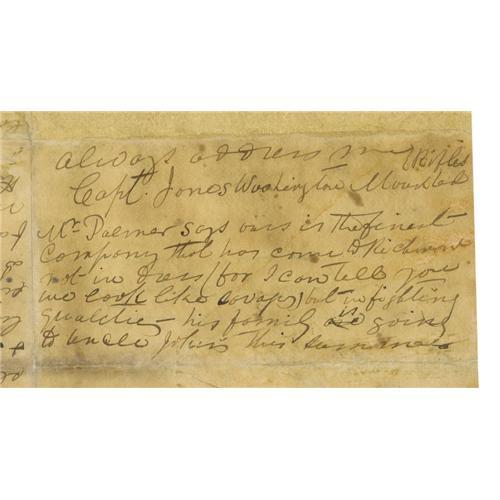 always address me
Capt. Jones Washington Mounted Rifles
Mr Palmer says ours is the finest
Company that has come to Richmond
not in dress (for I can tell you
we look like) but in fighting
qualitie - his family is going
to uncle John's this summer